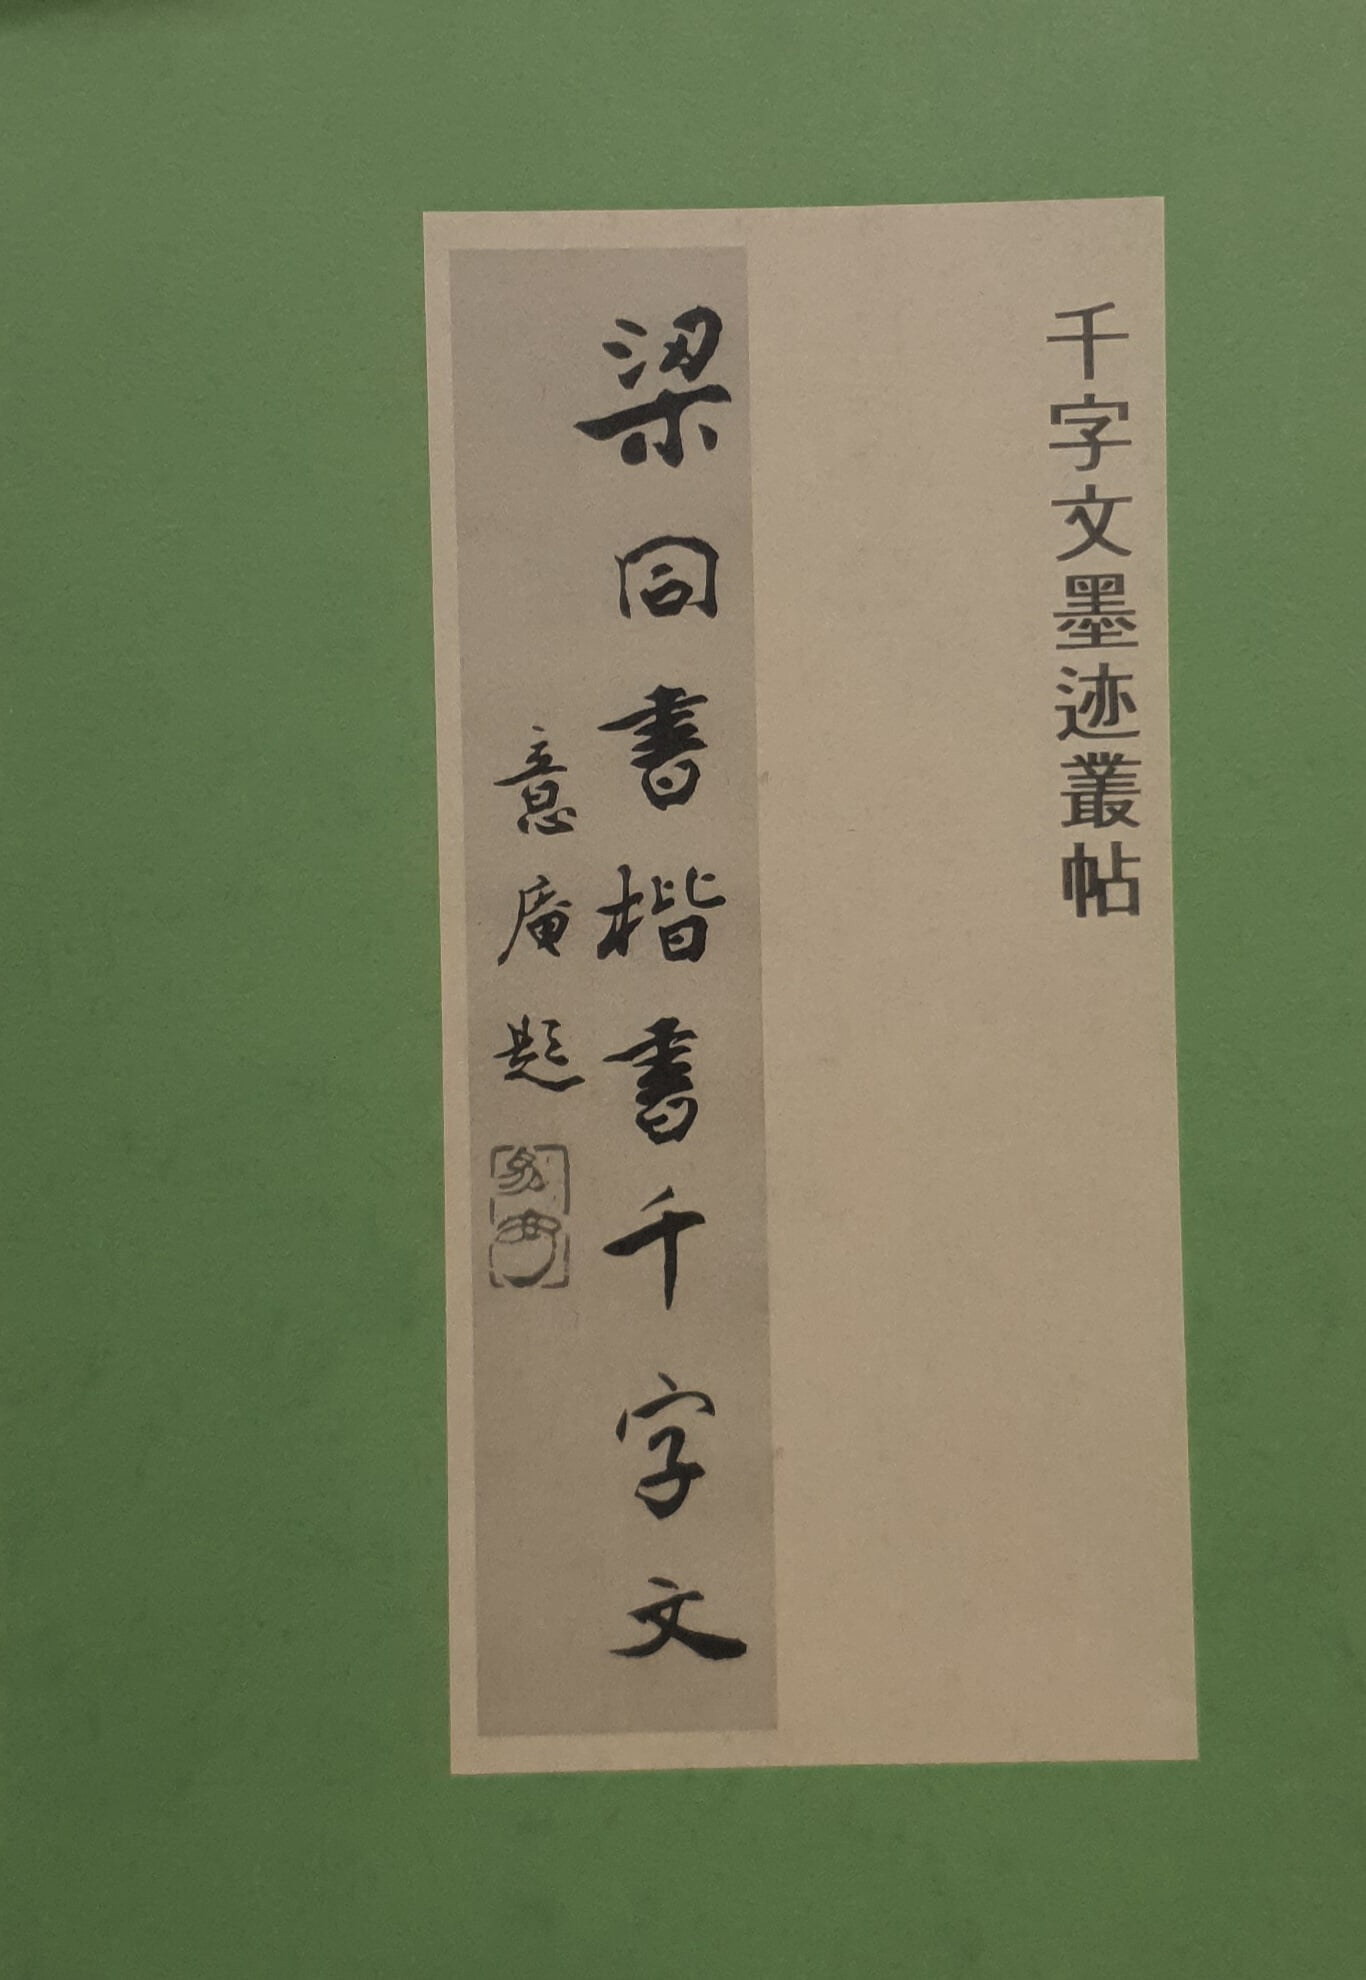 千字文墨迹叢帖
梁同書楷書千字文
意庵题